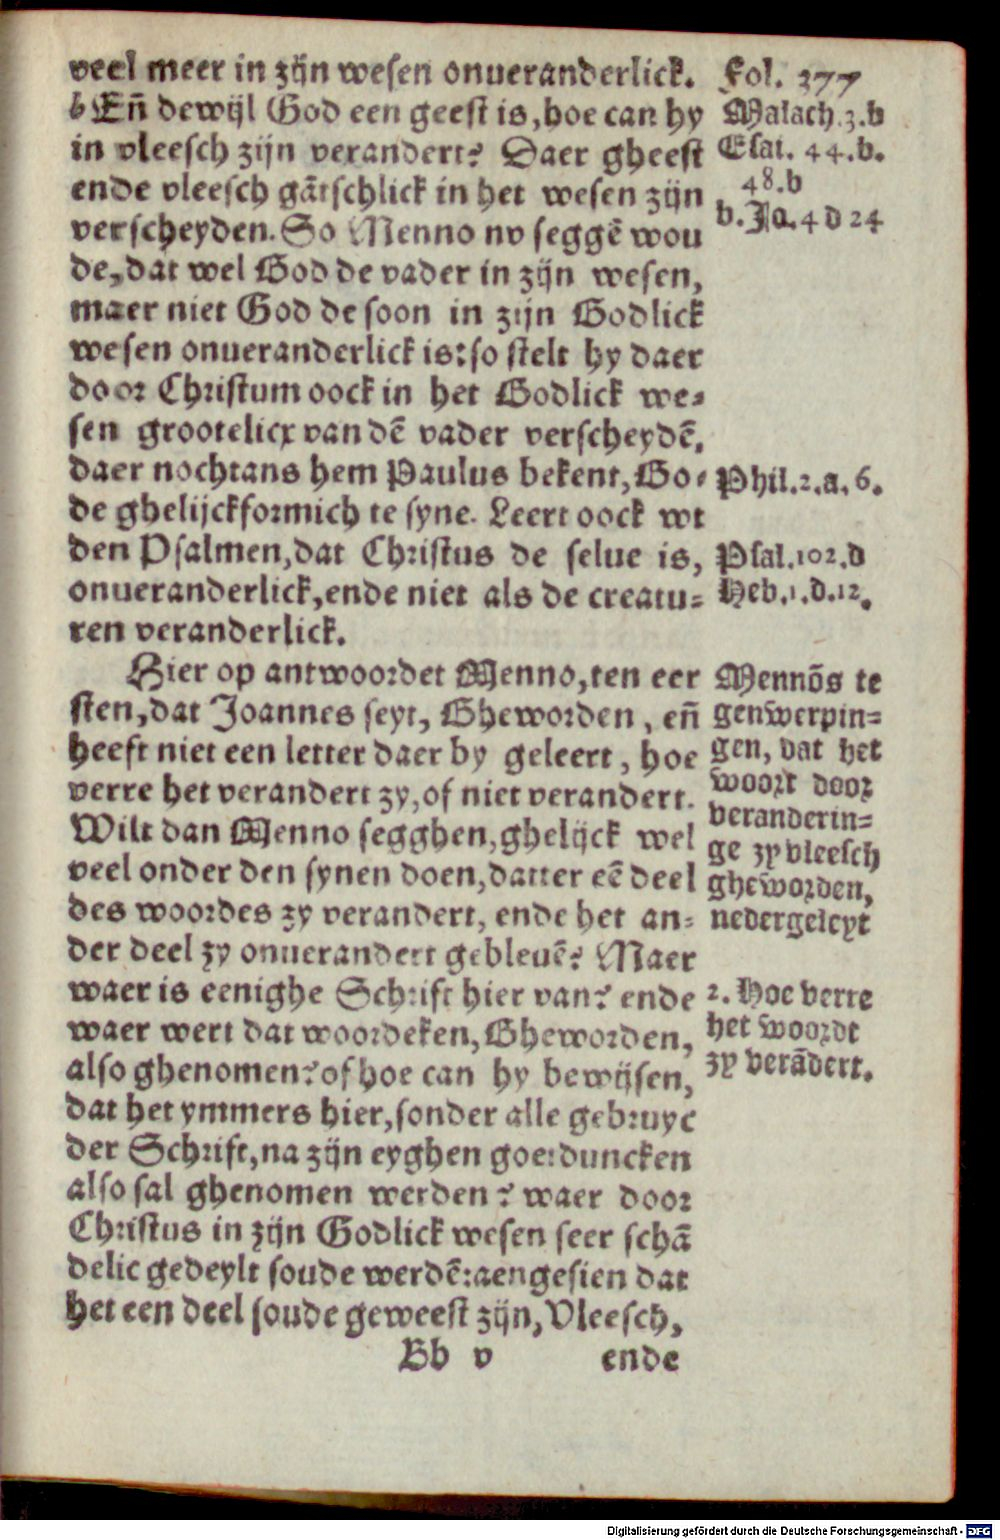 Fol. 377
veel meer in zijn wesen onueranderlick.
b Eñ dewijl God een geest is, hoe can hy
in vleesch zijn verandert? Daer gheest
ende vleesch gãtschlick in het wesen zijn
verscheyden. So Menno nv seggẽ wou
de, dat wel God de vader in zijn wesen,
maer niet God de soon in zijn Godlick
wesen onueranderlick is: so stelt hy daer
door Christum oock in het Godlick we-
sen grootelicx van dẽ vader verscheydẽ.
daer nochtans hem Paulus bekent, Go-
de ghelijckformich te syne. Leert oock wt
den Psalmen, dat Christus de selue is,
onueranderlick, ende niet als de creatu-
ren veranderlick.
Malach. 3. b
Esai. 44. b.
48. b
b. Jo. 4 d 24
Phil. 2. a. 6.
Psal. 102. d
Heb. 1. d. 12.
Hier op antwoordet Menno, ten eer
sten, dat Joannes seyt, Gheworden, eñ
heeft niet een letter daer by geleert, hoe
verre het verandert zy, of niet verandert.
Wilt dan Menno segghen, ghelijck wel
veel onder den synen doen, datter eẽ deel
des woordes zy verandert, ende het an-
der deel zy onuerandert gebleuẽ? Maer
waer is eenighe Schrift hier van? ende
waer wert dat woordeken, Gheworden,
also ghenomen? of hoe can hy bewijsen,
dat het ymmers hier, sonder alle gebruyc
der Schrift, na zijn eyghen goetduncken
also sal ghenomen werden? waer door
Christus in zijn Godlick wesen seer schã
delic gedeylt soude werdẽ: aengesien dat
het een deel soude geweest zijn, Vleesch,
Mennõs te
genwerpin-
gen, dat het
woort door
veranderin-
ge zy vleesch
gheworden,
nedergeleyt
2. Hoe verre
het woordt
zy verãdert.
Bb v ende
Digitalisierung gefördert durch die Deutsche Forschungsgemeinschaft - DFG